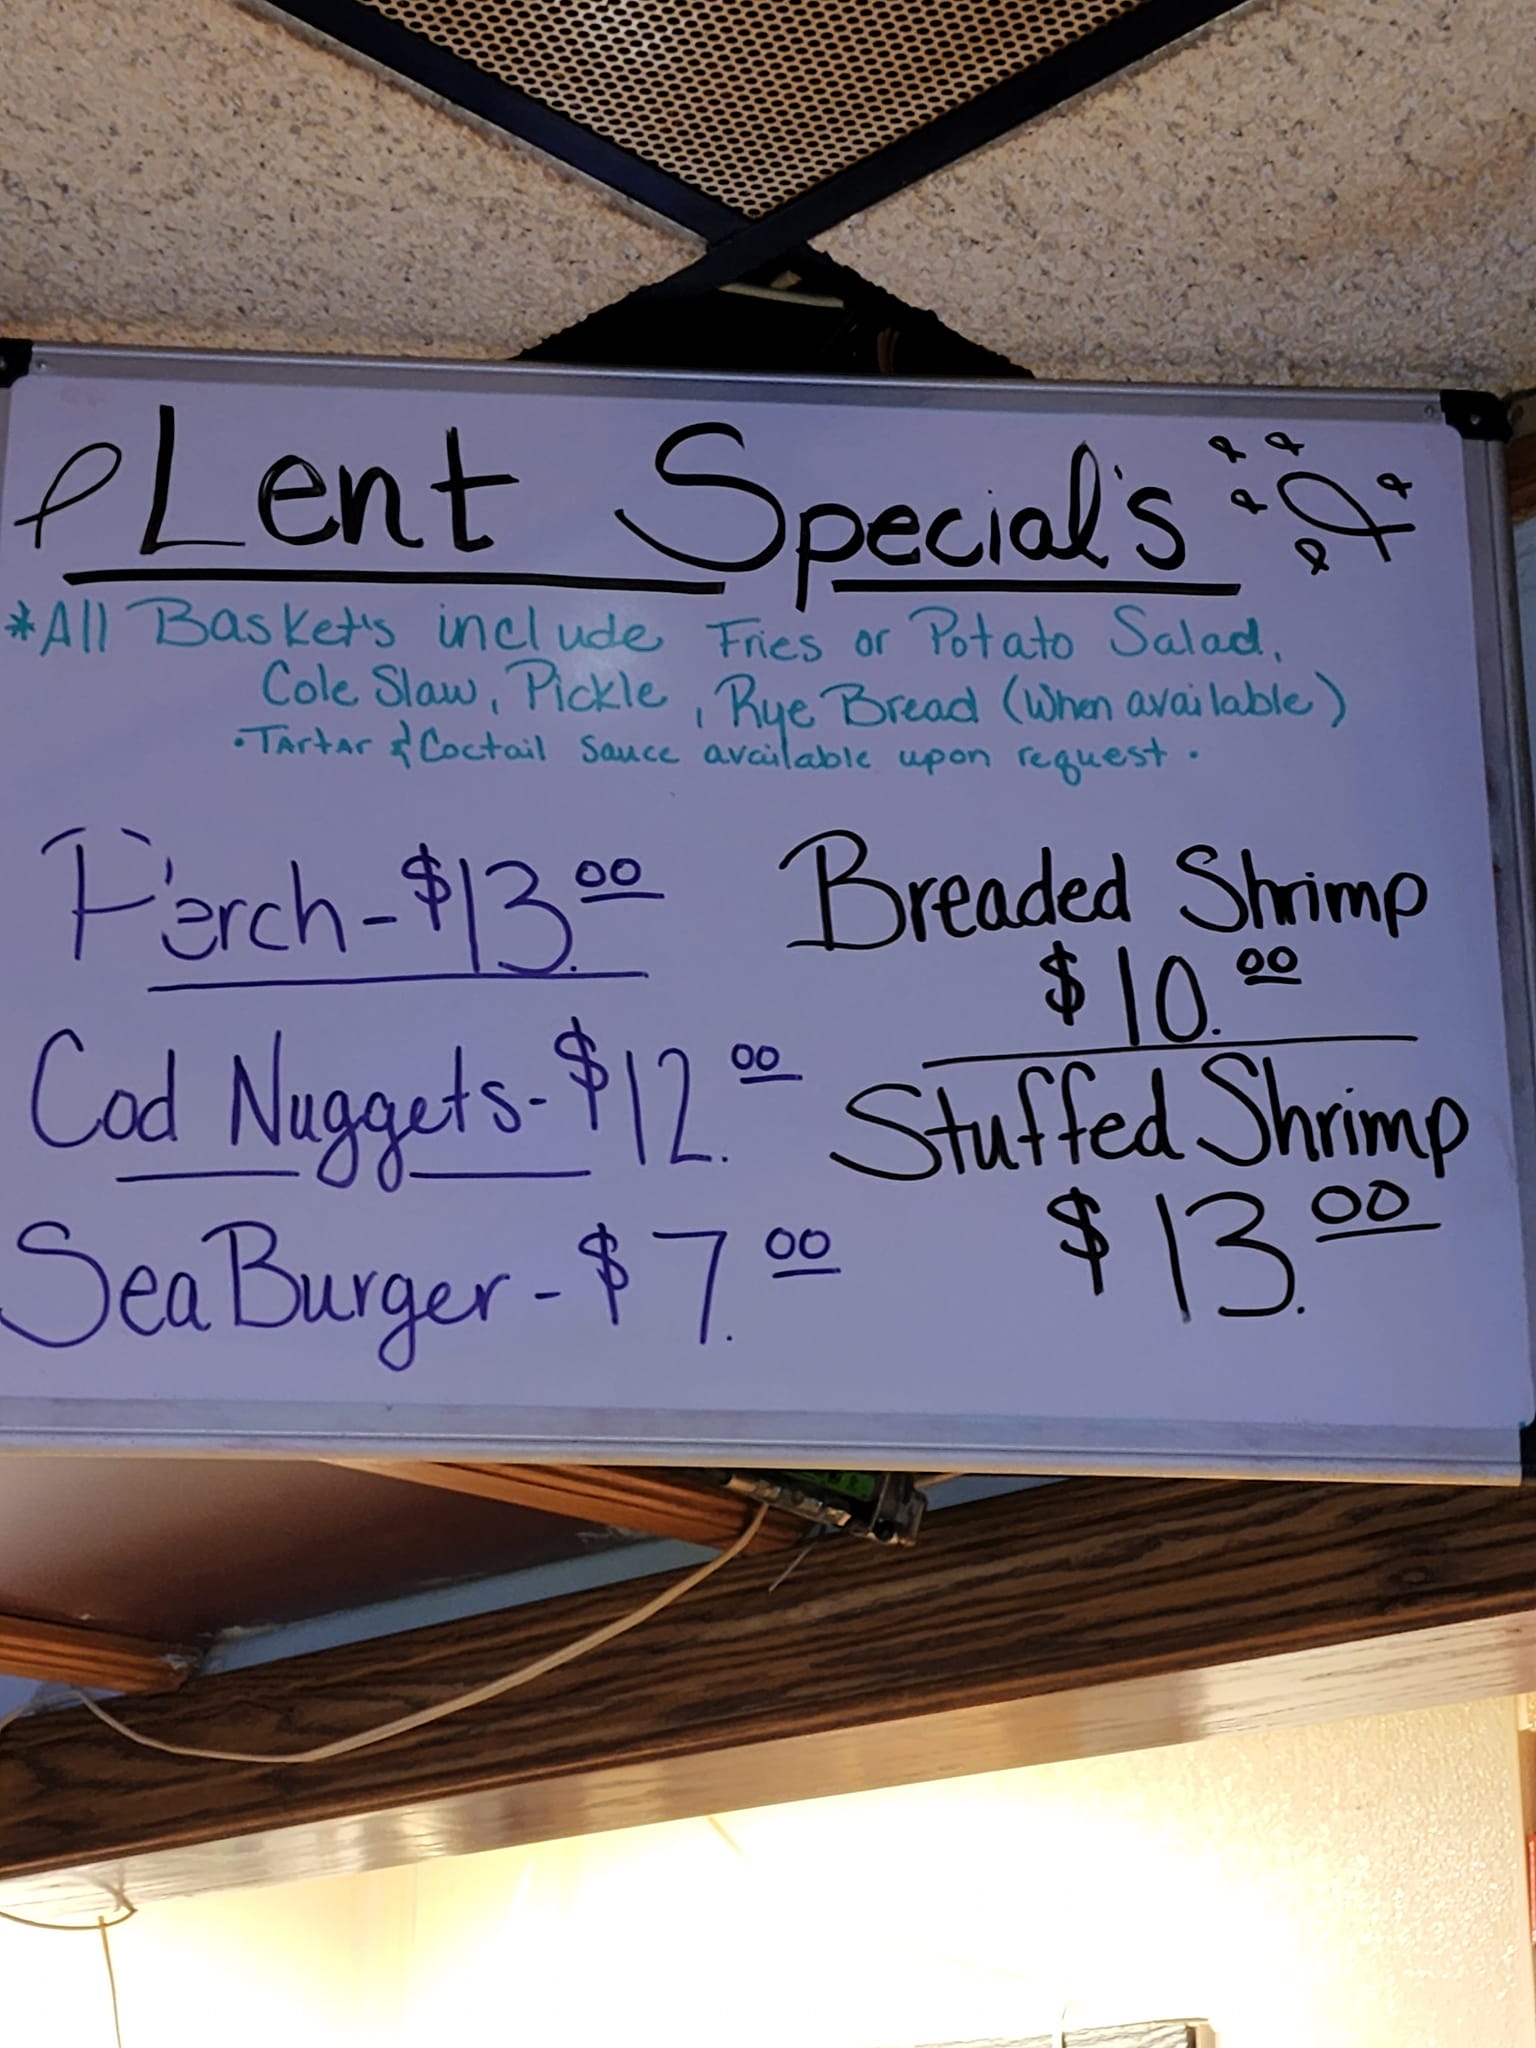 Lent Special's
*All Basket's include Fries or Potato Salad,
Cole Slaw, Pickle, Rye Bread (When available)
• Tartar & Coctail Sauce available upon request •
Perch - $13.00
Cod Nuggets - $12.00
Sea Burger - $7.00
Breaded Shrimp
$10.00
Stuffed Shrimp
$13.00